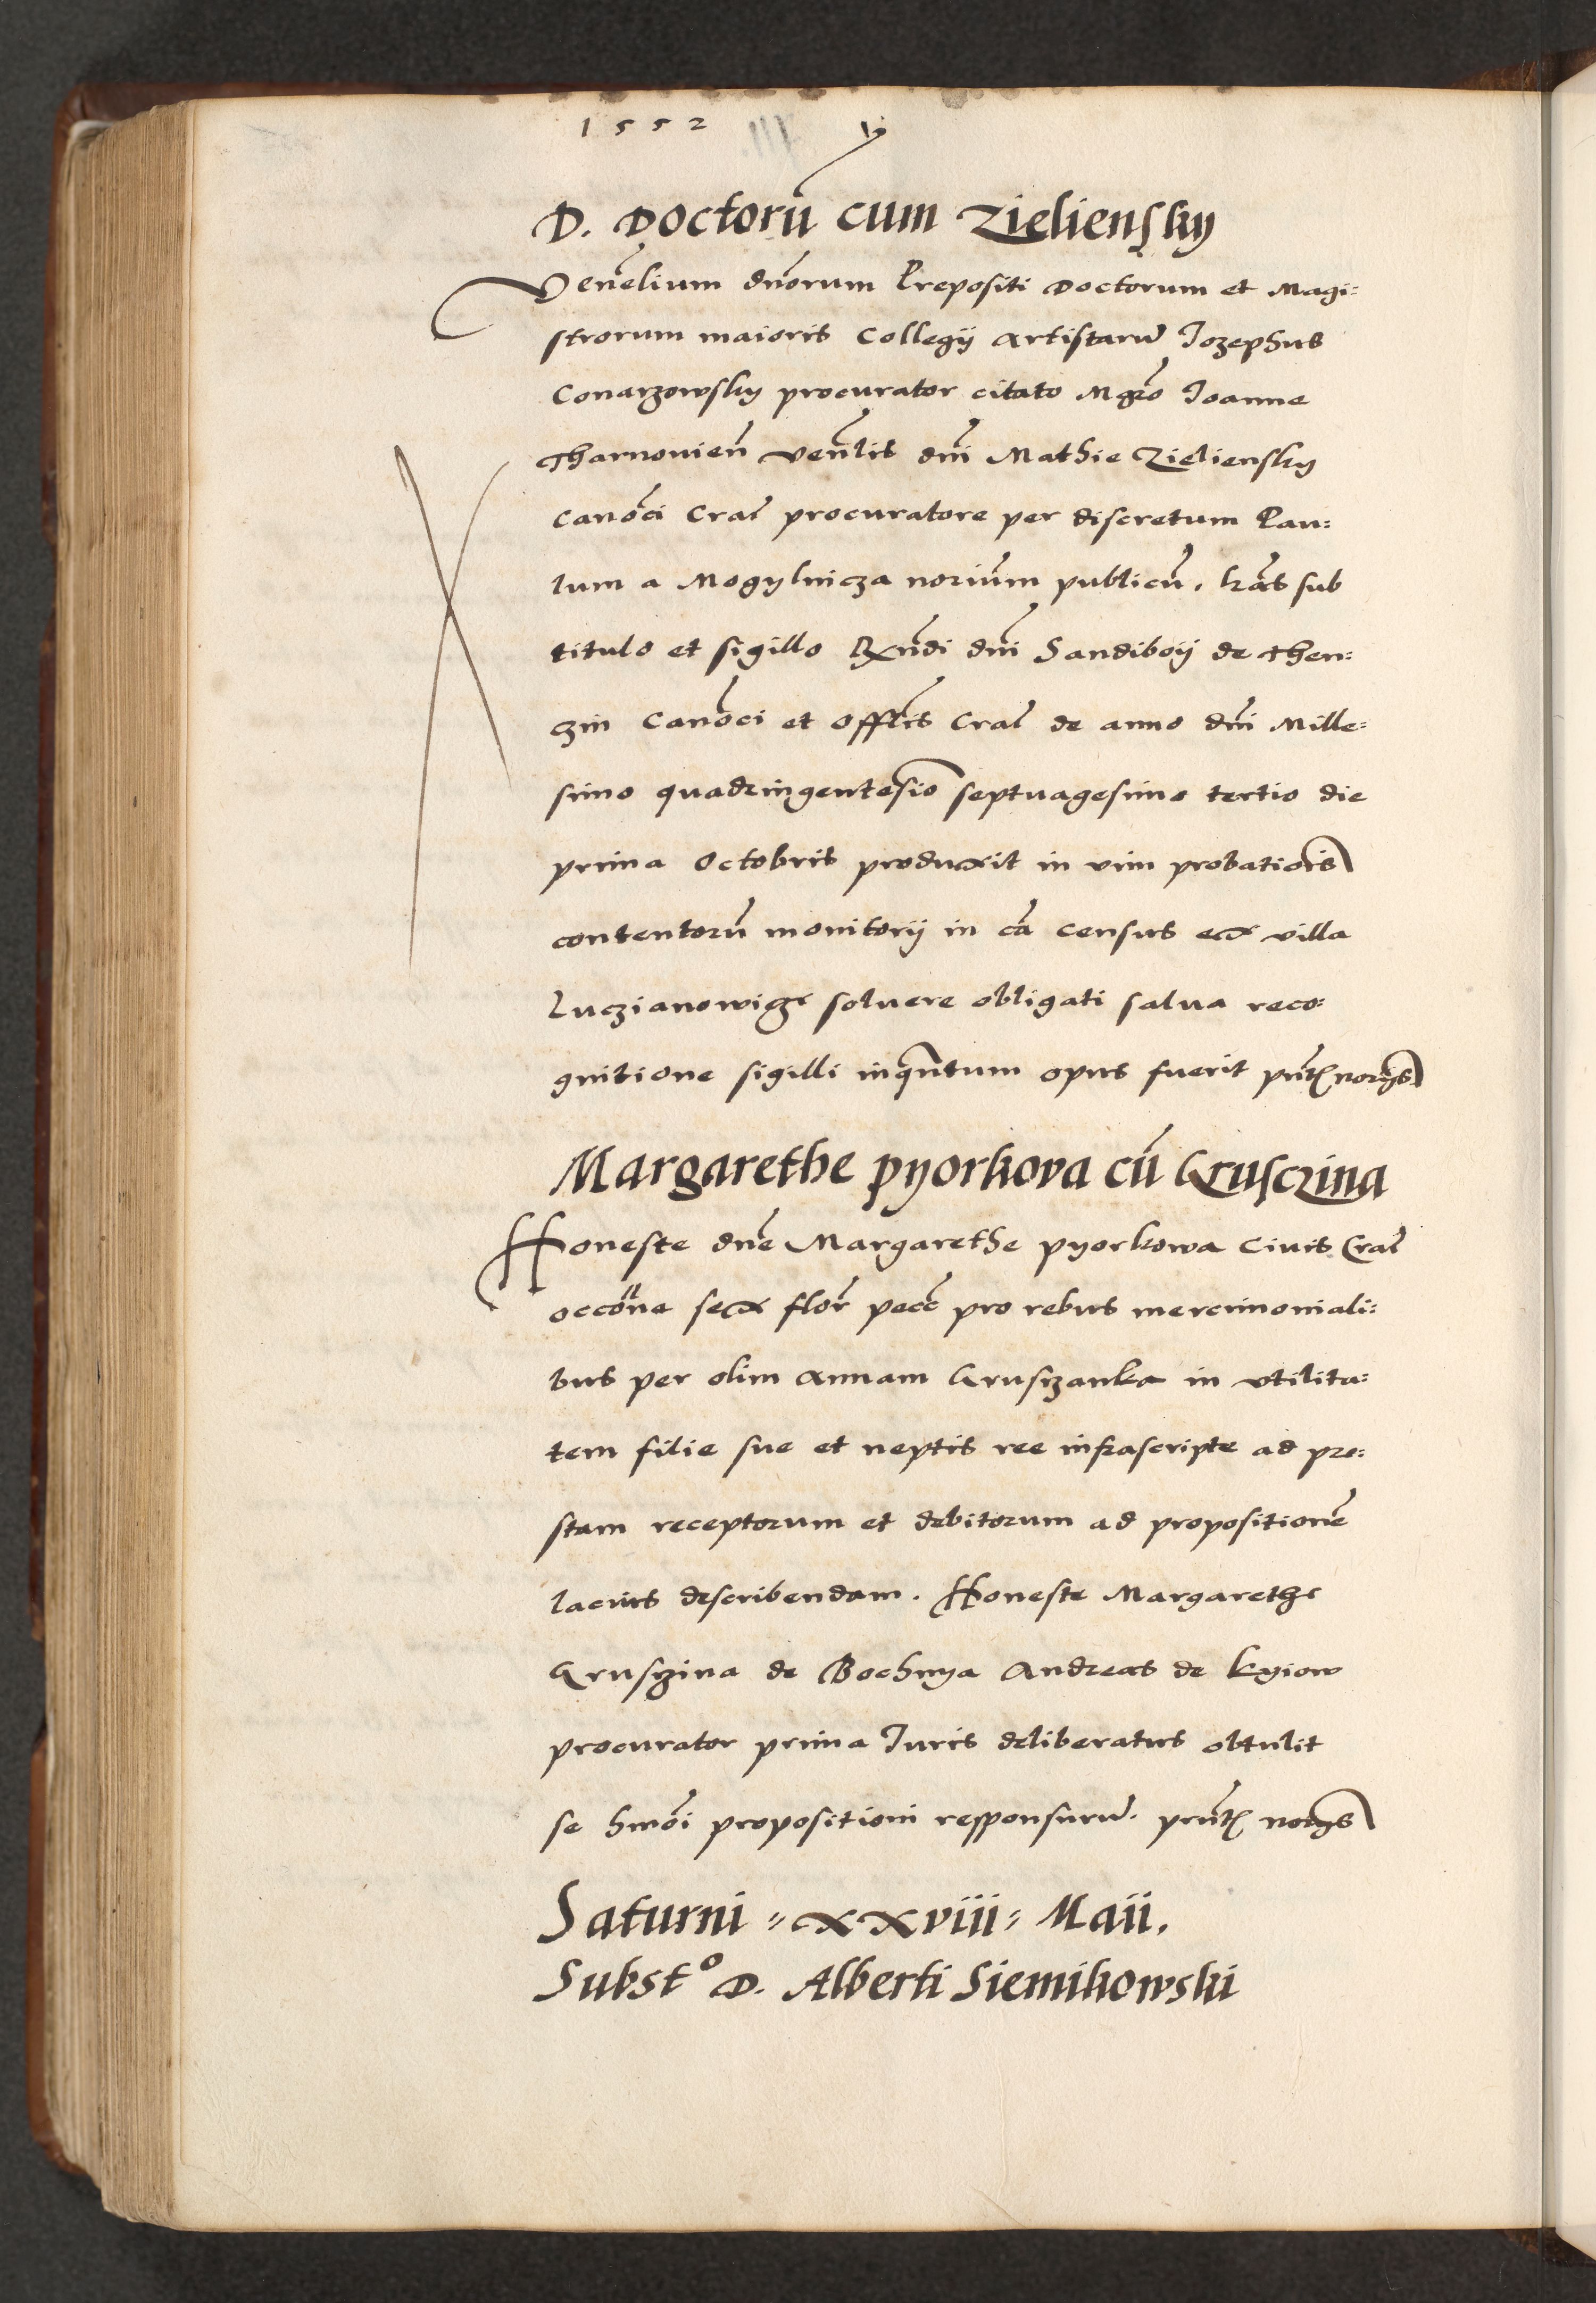 1552
D. Doctorū cum Zieliensky
Venēlium dnōrum Prepositi Doctorum et Magi=
strorum maioris Collegij Artistarū Jozephus
Conarzowsky procurator citato Mgrō Joanne
Tharnovien̄ venlīs dnī Mathie Zieliensky
Canōci Cral procuratore per discretum Pau=
lum a Mogylnicza noriūm publicū. lrās sub
titulo et sigillo Rndī dnī Sandiboij de Then=
czin Canōci et Offlīs Cral de anno dnī Mille=
simo quadringentesīo septuagesimo tertio die
prima Octobris produxit in vim probatiōis
contentorū monitorij in cā census ex villa
Luczianowicze soluere obligati salua reco=
gnitione sigilli inqntum opus fuerit pntī
Margarethe pyorkova cū Grusczina
Honeste dnē Margarethe pyorkowa Civis Cral
occōne sex flor pecc pro rebus mercimoniali=
bus per olim Annam Grusczanka in vtilita=
tem filie sue et neptis ree infrascripte ad pre=
stam receptorum et debitorum ad propositionē
lacius describendam. Honeste Margarethe
Grusczina de Bochnya Andreas de Kyiow
procurator prima Iuris deliberatus obtulit
se hmōi propositioni responsurū. prntī
Saturni = xxviii = Maii.
Substº D. Alberti Siemikowski